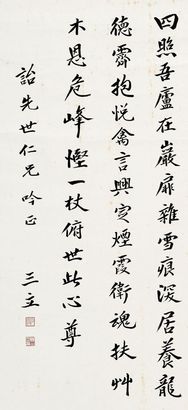 四照吾廬在巖扉雜雪痕深居養龍
德霽抱悅禽言興定煙霞衛魂扶艸
木恩危峰慳一杖俯世此心尊
詒先世仁兄吟正
三立